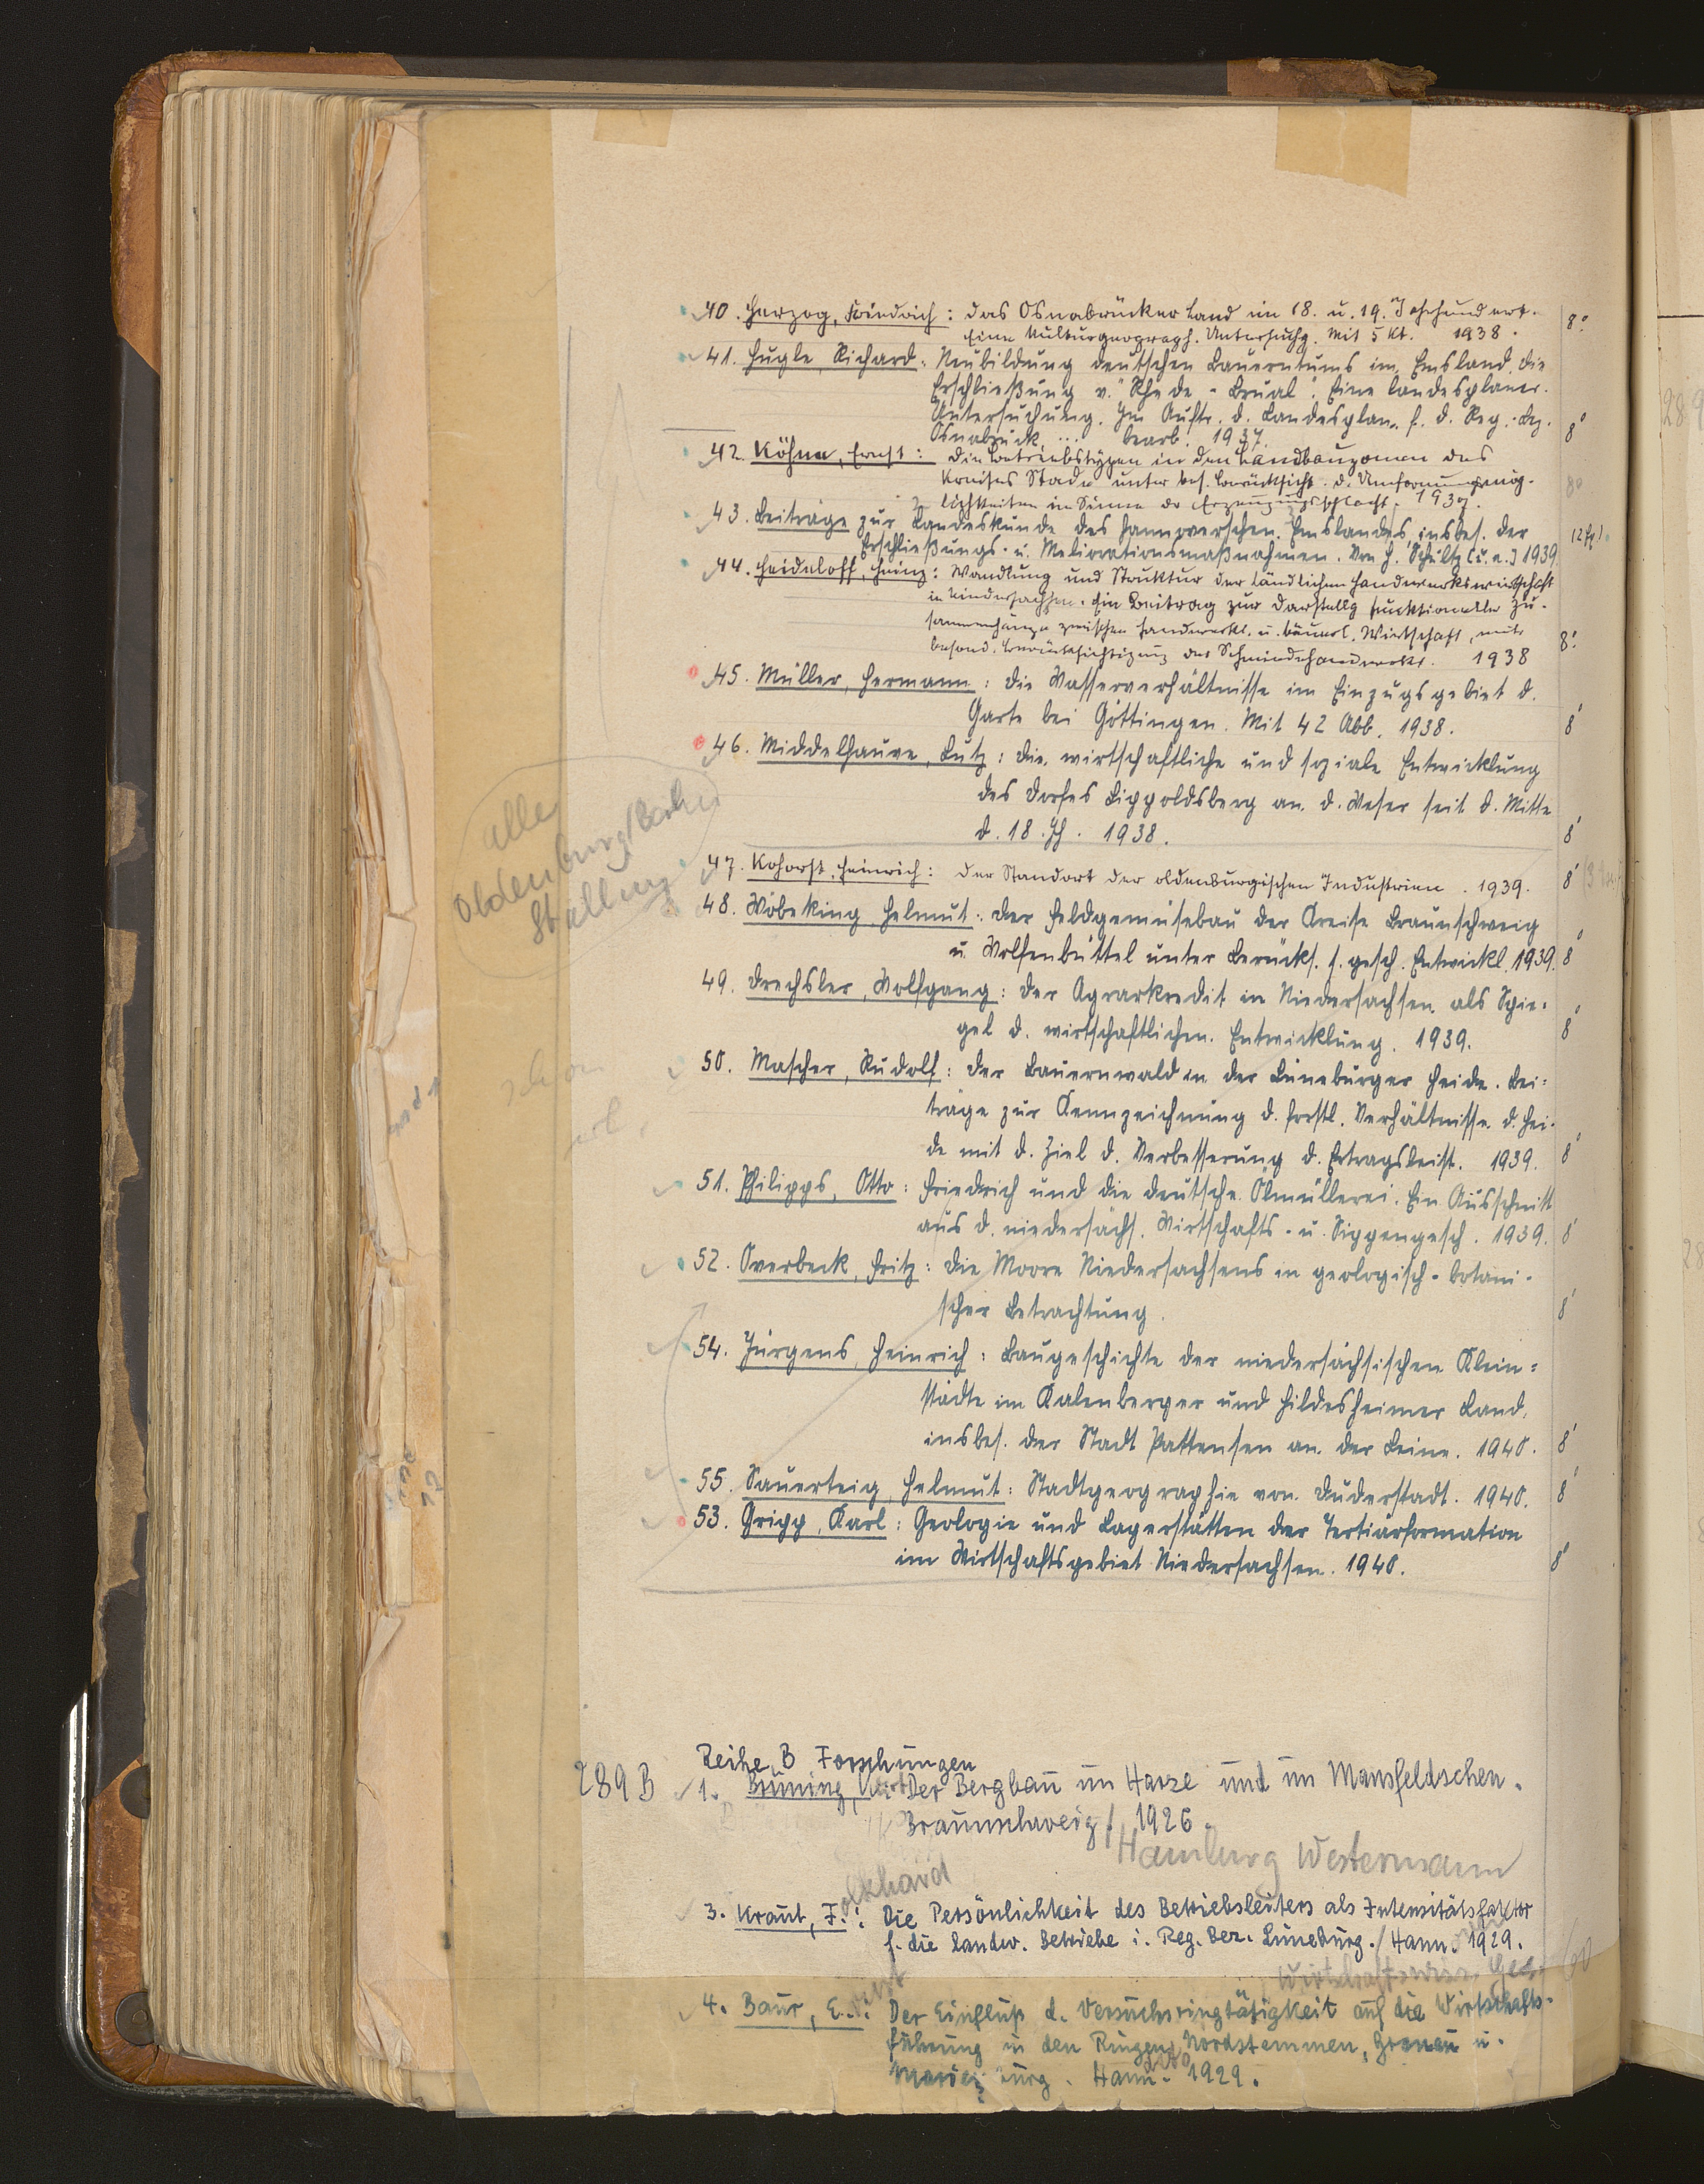 40. Herzog, Friedrich: Das Osnabrücker Land im 18. u. 19. Jahrhundert.
Eine kulturgeograph. Untersuchg. Mit 5 Kt. 1938. 8°
41. Hugle, Richard: Neubildung deutschen Bauerntums im Emsland. Die
Erschließung v. "Rhede-Brual". Eine landesplaner.
Untersuchung. Im Auftr. d. Landesplan. f. d. Reg.-Bez.
Osnabrück ... bearb. 1937. 8°
42. Köhne, Ernst: Die Betriebstypen in den Landbauzonen des
Kreises Stade unter bes. Berücksicht. d. Umformungsmög-
lichkeiten im Sinne der Erzeugungsschlacht. 1937. 8°
43. Beiträge zur Landeskunde des hannoverschen Emslandes, insbes. der
Erschließungs- u. Meliorationsmaßnahmen. Von H. Schultz [u. a.] 1939
44. Heideloff, Heinz: Wandlung und Struktur der ländlichen Handwerkswirtschaft
in Niedersachsen. Ein Beitrag zur Darstellg funktioneller Zu-
sammenhänge zwischen handwerkl. u. bäuerl. Wirtschaft, unter
besond. Berücksichtigung des Schmiedehandwerks. 1938 8°
45. Müller, Hermann: Die Wasserverhältnisse im Einzugsgebiet d.
Garte bei Göttingen. Mit 42 Abb. 1938. 8°
46. Middelhauve, Lutz: Die wirtschaftliche und soziale Entwicklung
des Dorfes Lippoldsberg an d. Weser seit d. Mitte
d. 18. Jh. 1938. 8°
alle
Oldenburg/Berlin
Stalling
47. Kohorst, Heinrich: Der Standort der oldenburgischen Industrien. 1939. 8°
48. Wöbeking, Helmut: Der Feldgemüsebau der Kreise Braunschweig
u. Wolfenbüttel unter Berücks. s. gesch. Entwickl. 1939. 8°
49. Drechsler, Wolfgang: Der Agrarkredit in Niedersachsen als Spie-
gel d. wirtschaftlichen Entwicklung. 1939. 8°
50. Mascher, Rudolf: Der Bauernwald in der Lüneburger Heide. Bei-
träge zur Kennzeichnung d. forstl. Verhältnisse d. Hei-
de mit d. Ziel d. Verbesserung d. Ertragsleist. 1939. 8°
51. Philipps, Otto: Friedrich und die deutsche Ölmüllerei. Ein Ausschnitt
aus d. niedersächs. Wirtschafts- u. Sippengesch. 1939. 8°
52. Overbeck, Fritz: Die Moore Niedersachsens in geologisch-botani-
scher Betrachtung. 8°
54. Jürgens, Heinrich: Baugeschichte der niedersächsischen Klein-
städte im Kalenberger und Hildesheimer Land,
insbes. der Stadt Pattensen an der Leine. 1940. 8°
55. Sauerteig, Helmut: Stadtgeographie von Duderstadt. 1940. 8°
53. Gripp, Karl: Geologie und Lagerstätten der Tertiärformation
im Wirtschaftsgebiet Niedersachsen. 1940. 8°
Reihe B Forschungen
289 B 1. Brüning, Kurt: Der Bergbau im Harze und im Mansfeldschen.
Braunschweig/ 1926.
Hamburg Westermann
3. Kraut, F.: Die Persönlichkeit des Betriebsleiters als Intensitätsfaktor
f. die landw. Betriebe i. Reg. Bez. Lüneburg./ Hann. 1929.
Wirtschaftswiss. Ges.
4. Baur, E.: Der Einfluß d. Versuchsringtätigkeit auf die Wirtschafts-
führung in den Ringen Nordstemmen, Gronau u.
Marienburg. Hann. 1929.